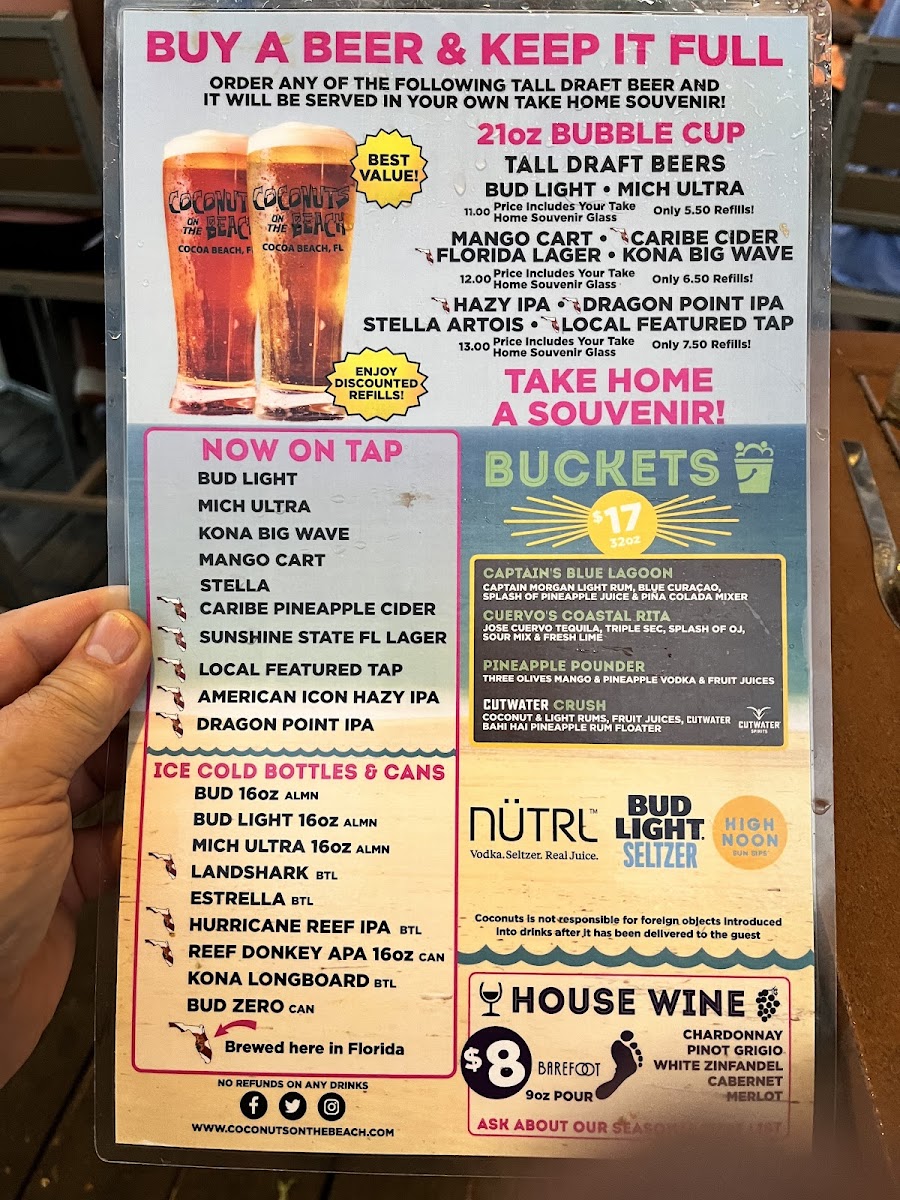 BUY A BEER & KEEP IT FULL
ORDER ANY OF THE FOLLOWING TALL DRAFT BEER AND
IT WILL BE SERVED IN YOUR OWN TAKE HOME SOUVENIR!
COCONUTS
ON
THE BEACH
COCOA BEACH, FL
BEST
VALUE!
ENJOY
DISCOUNTED
REFILLS!
21oz BUBBLE CUP
TALL DRAFT BEERS
BUD LIGHT • MICH ULTRA
11.00 Price Includes Your Take Home Souvenir Glass Only 5.50 Refills!
MANGO CART • CARIBE CIDER
FLORIDA LAGER • KONA BIG WAVE
12.00 Price Includes Your Take Home Souvenir Glass Only 6.50 Refills!
HAZY IPA • DRAGON POINT IPA
STELLA ARTOIS • LOCAL FEATURED TAP
13.00 Price Includes Your Take Home Souvenir Glass Only 7.50 Refills!
TAKE HOME
A SOUVENIR!
NOW ON TAP
BUD LIGHT
MICH ULTRA
KONA BIG WAVE
MANGO CART
STELLA
CARIBE PINEAPPLE CIDER
SUNSHINE STATE FL LAGER
LOCAL FEATURED TAP
AMERICAN ICON HAZY IPA
DRAGON POINT IPA
ICE COLD BOTTLES & CANS
BUD 16oz ALMN
BUD LIGHT 16oz ALMN
MICH ULTRA 16oz ALMN
LANDSHARK BTL
ESTRELLA BTL
HURRICANE REEF IPA BTL
REEF DONKEY APA 16oz CAN
KONA LONGBOARD BTL
BUD ZERO CAN
Brewed here in Florida
NO REFUNDS ON ANY DRINKS
WWW.COCONUTSONTHEBEACH.COM
BUCKETS
$17
32oz
CAPTAIN'S BLUE LAGOON
CAPTAIN MORGAN LIGHT RUM, BLUE CURAÇAO,
SPLASH OF PINEAPPLE JUICE & PIÑA COLADA MIXER
CUERVO'S COASTAL RITA
JOSE CUERVO TEQUILA, TRIPLE SEC, SPLASH OF OJ,
SOUR MIX & FRESH LIME
PINEAPPLE POUNDER
THREE OLIVES MANGO & PINEAPPLE VODKA & FRUIT JUICES
CUTWATER CRUSH
COCONUT & LIGHT RUMS, FRUIT JUICES, CUTWATER
BAHI HAI PINEAPPLE RUM FLOATER
CUTWATER
SPIRITS
NÜTRL™
Vodka. Seltzer. Real Juice.
BUD
LIGHT.
SELTZER
HIGH
NOON
SUN SIPS
Coconuts is not responsible for foreign objects introduced
into drinks after it has been delivered to the guest
HOUSE WINE
$8
BAREFOOT
9oz POUR
CHARDONNAY
PINOT GRIGIO
WHITE ZINFANDEL
CABERNET
MERLOT
ASK ABOUT OUR